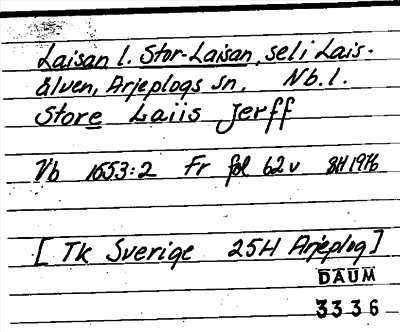 Laisan l. Stor-Laisan, sel i Lais-
älven, Arjeplogs sn, Nb. l.
Store Laiis Jerff
Vb 1653:2 Fr fol 62v BH 1976
[TK Sverige 25H Arjeplog]
DAUM
3336